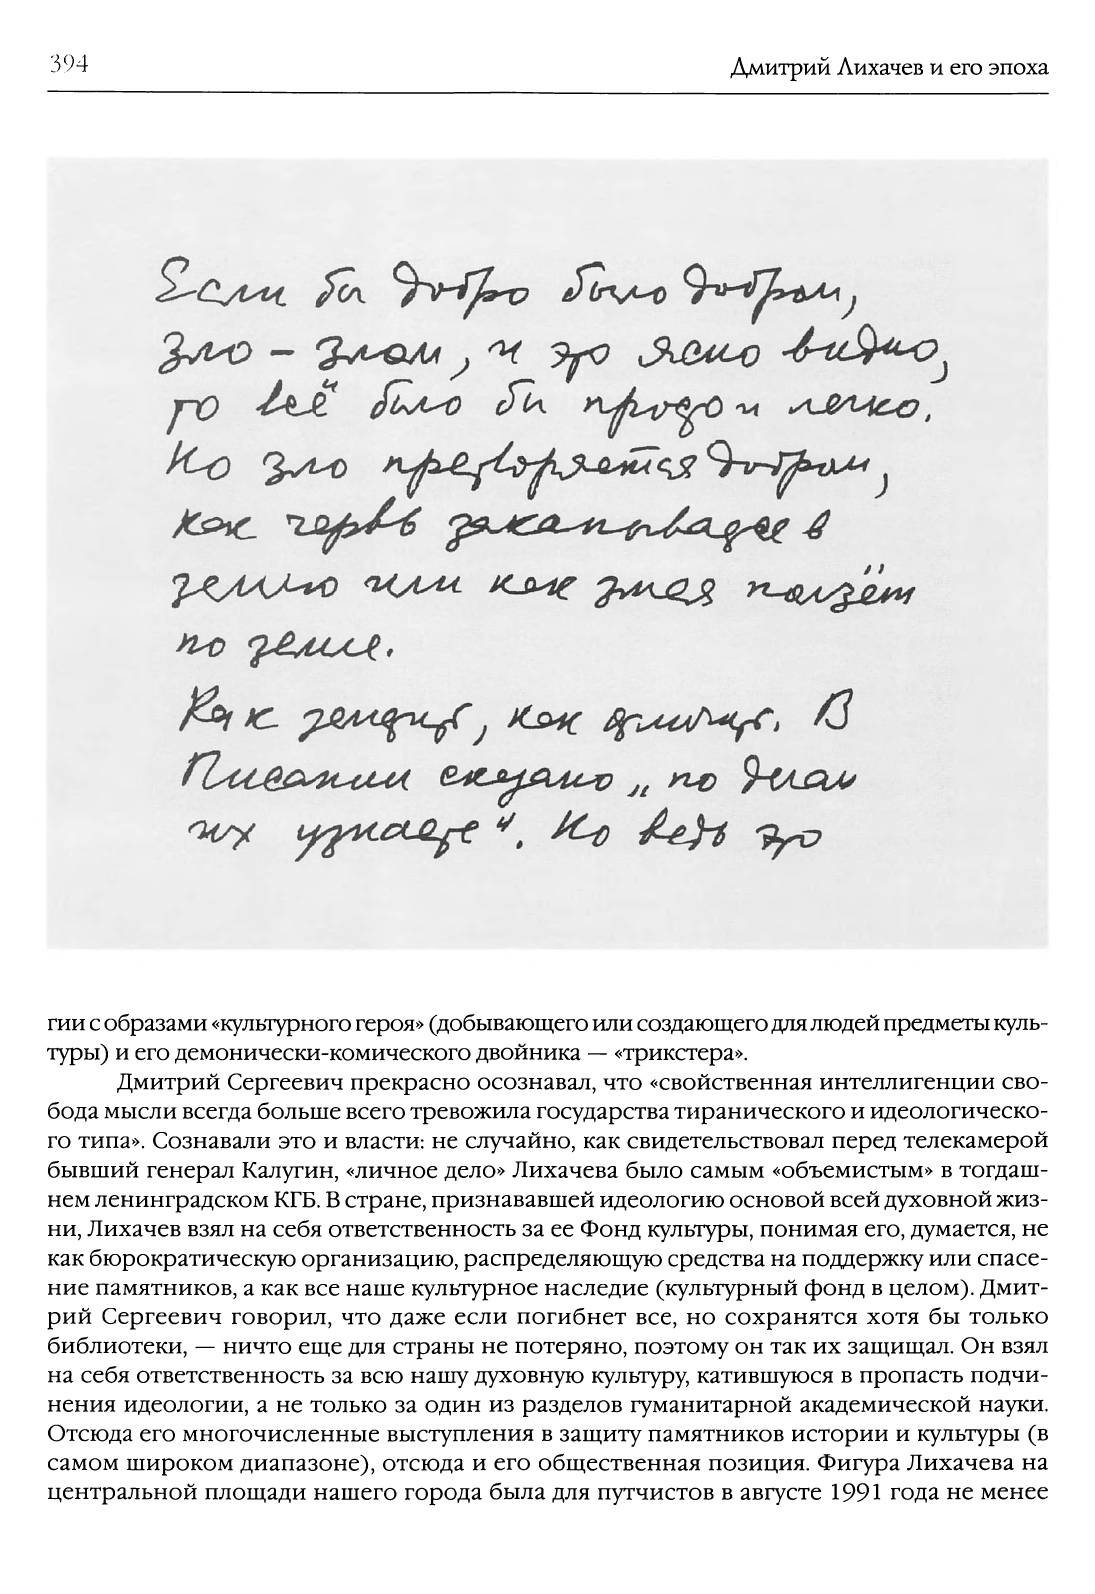 394
Дмитрий Лихачев и его эпоха
Если бы добро было добром,
зло – злом, и это ясно видно,
то всё было бы просто и легко.
Но зло претворяется добром,
как червь закапывается в
землю или как змея ползёт
по земле.
Как защитить, как отличить. В
Писании сказано „по делам
их узнаете“. Но ведь это
гии с образами «культурного героя» (добывающего или создающего для людей предметы куль-
туры) и его демонически-комического двойника — «трикстера».
Дмитрий Сергеевич прекрасно осознавал, что «свойственная интеллигенции сво-
бода мысли всегда больше всего тревожила государства тиранического и идеологическо-
го типа». Сознавали это и власти: не случайно, как свидетельствовал перед телекамерой
бывший генерал Калугин, «личное дело» Лихачева было самым «объемистым» в тогдаш-
нем ленинградском КГБ. В стране, признававшей идеологию основой всей духовной жиз-
ни, Лихачев взял на себя ответственность за ее Фонд культуры, понимая его, думается, не
как бюрократическую организацию, распределяющую средства на поддержку или спасе-
ние памятников, а как все наше культурное наследие (культурный фонд в целом). Дмит-
рий Сергеевич говорил, что даже если погибнет все, но сохранятся хотя бы только
библиотеки, — ничто еще для страны не потеряно, поэтому он так их защищал. Он взял
на себя ответственность за всю нашу духовную культуру, катившуюся в пропасть подчи-
нения идеологии, а не только за один из разделов гуманитарной академической науки.
Отсюда его многочисленные выступления в защиту памятников истории и культуры (в
самом широком диапазоне), отсюда и его общественная позиция. Фигура Лихачева на
центральной площади нашего города была для путчистов в августе 1991 года не менее